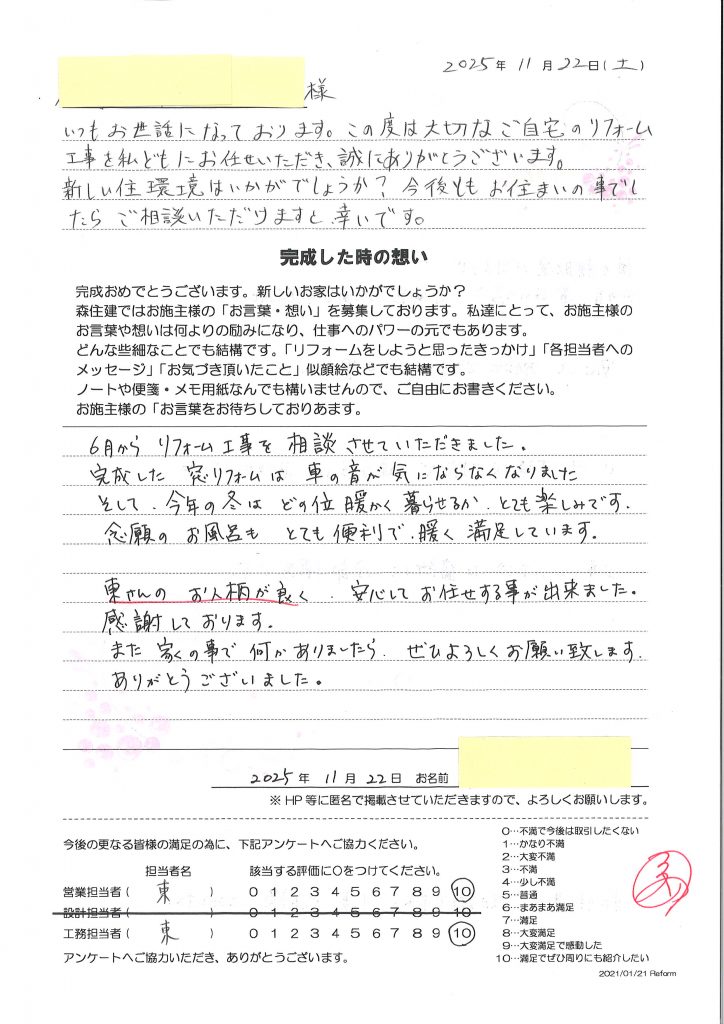 2025年 11月 22日(土)
様
いつもお世話になっております。この度は大切なご自宅のリフォーム
工事を私どもにお任せいただき、誠にありがとうございます。
新しい住環境はいかがでしょうか？ 今後ともお住まいの事でし
たらご相談いただけますと幸いです。
完成した時の想い
完成おめでとうございます。新しいお家はいかがでしょうか？
森住建ではお施主様の「お言葉・想い」を募集しております。私達にとって、お施主様の
お言葉や想いは何よりの励みになり、仕事へのパワーの元でもあります。
どんな些細なことでも結構です。「リフォームをしようと思ったきっかけ」「各担当者への
メッセージ」「お気づき頂いたこと」似顔絵などでも結構です。
ノートや便箋・メモ用紙なんでも構いませんので、ご自由にお書きください。
お施主様の「お言葉をお待ちしておりあます。
6月から リフォーム工事を 相談 させていただきました。
完成した 窓リフォームは 車の音が 気にならなくなりました
そして、今年の冬は どの位 暖かく 暮らせるか、とても楽しみです。
念願の お風呂も とても便利で、暖く 満足しています。
東さんの お人柄が良く、安心して お任せする事が出来ました。
感謝しております。
また 家の事で 何かありましたら、ぜひよろしくお願い致します。
ありがとうございました。
2025年 11月 22日 お名前
※HP等に匿名で掲載させていただきますので、よろしくお願いします。
今後の更なる皆様の満足の為に、下記アンケートへご協力ください。
担当者名 該当する評価に〇をつけてください。
営業担当者( 東 ) 0 1 2 3 4 5 6 7 8 9 10
設計担当者( ) 0 1 2 3 4 5 6 7 8 9 10
工務担当者( 東 ) 0 1 2 3 4 5 6 7 8 9 10
アンケートへご協力いただき、ありがとうございます。
0…不満で今後は取引したくない
1…かなり不満
2…大変不満
3…不満
4…少し不満
5…普通
6…まあまあ満足
7…満足
8…大変満足
9…大変満足で感動した
10…満足でぜひ周りにも紹介したい
2021/01/21 Reform